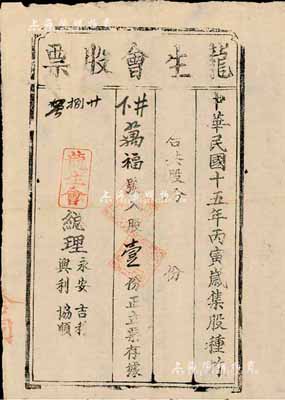 龍生會股票
中華民國十五年丙寅歲集股種
合共股分 份
萬福號入股壹份正立票存據
卅捌號
龍生會
總理
永安 吉利
興利 協順